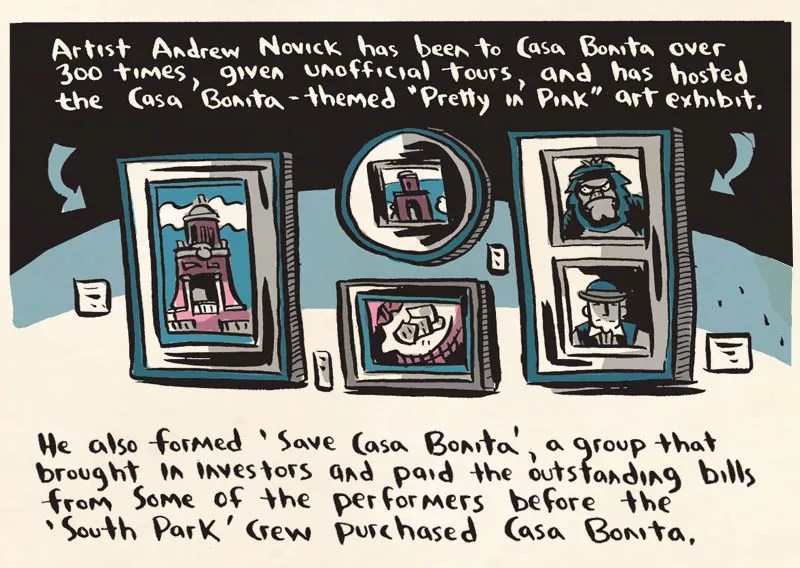 Artist Andrew Novick has been to Casa Bonita over
300 times, given unofficial tours, and has hosted
the Casa Bonita-themed "Pretty in Pink" art exhibit.
He also formed 'Save Casa Bonita', a group that
brought in investors and paid the outstanding bills
from some of the performers before the
'South Park' crew purchased Casa Bonita.